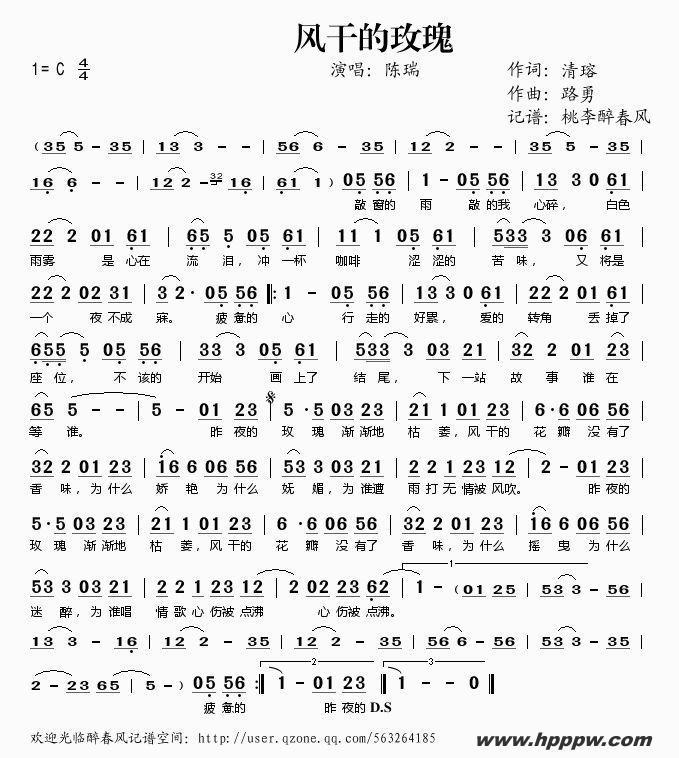 风干的玫瑰
1= C 4/4
演唱：陈瑞
作词：清瑢
作曲：路勇
记谱：桃李醉春风
( 35 5 - 35 | 13 3 - | 56 6 - 35 | 12 2 - | 35 5 - 35 |
16 6 - | 12 2 - 32 16 | 61 1 ) 05 56 | 1 - 05 56 | 13 3 0 61 |
敲窗的 雨 敲的我 心碎， 白色
22 2 01 61 | 65 5 05 61 | 11 1 05 61 | 533 3 06 61 |
雨雾 是 心在 流 泪，冲 一杯 咖啡 涩 涩的 苦 味， 又 将是
22 2 02 31 | 3 2· 05 56 ‖: 1 - 05 56 | 13 3 0 61 | 22 2 01 61 |
一个 夜 不成 寐。 疲 惫的 心 行 走的 好累， 爱的 转角 丢 掉了
655 5 05 56 | 33 3 05 61 | 533 3 03 23 | 32 2 01 23 |
座 位， 不 该的 开始 画 上了 结 尾， 下 一站 故 事 谁 在
65 5 - - | 5 - 01 23 | 5 · 5 03 23 | 21 1 01 23 | 6 · 6 06 56 |
等 谁。 昨 夜的 玫 瑰 渐 渐地 枯 萎，风 干的 花 瓣 没 有了
32 2 01 23 | 16 6 06 56 | 53 3 03 21 | 21 23 23 12 | 2 - 01 23 |
香 味，为 什么 娇 艳 为 什么 妩 媚，为 谁遭 雨打 无 情被 风吹。 昨 夜的
5 · 5 03 23 | 21 1 01 23 | 6 · 6 06 56 | 32 2 01 23 | 16 6 06 56 |
玫 瑰 渐 渐地 枯 萎，风 干的 花 瓣 没 有了 香 味，为 什么 摇 曳 为 什么
53 3 03 21 | 21 23 23 12 | 2 02 23 62 | 1 - ( 01 25 | 53 3 - 56 |
迷 醉，为 谁唱 情歌 心 伤被 点沸 心 伤被 点沸。
13 3 - 16 | 12 2 - 35 | 12 2 - 35 | 56 6 - 56 | 53 3 - 35 |
2 - 23 65 | 5 - ) 05 56 :‖ 1 - 01 23 ‖ 1 - - 0 ‖
疲 惫的 昨 夜的 D.S
欢迎光临醉春风记谱空间：http://user.qzone.qq.com/563264185
www.hpppw.com